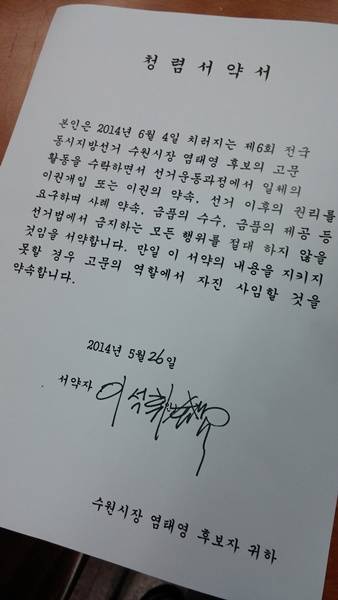 청 렴 서 약 서
본인은 2014년 6월 4일 치러지는 제6회 전국
동시지방선거 수원시장 염태영 후보의 고문
활동을 수락하면서 선거운동과정에서 일체의
이권개입 또는 이권의 약속, 선거 이후의 권리를
요구하며 사례 약속, 금품의 수수, 금품의 제공 등
선거법에서 금지하는 모든 행위를 절대 하지 않을
것임을 서약합니다. 만일 이 서약의 내용을 지키지
못할 경우 고문의 역할에서 자진 사임할 것을
약속합니다.
2014년 5월 26일
서약자 이석휘
수원시장 염태영 후보자 귀하